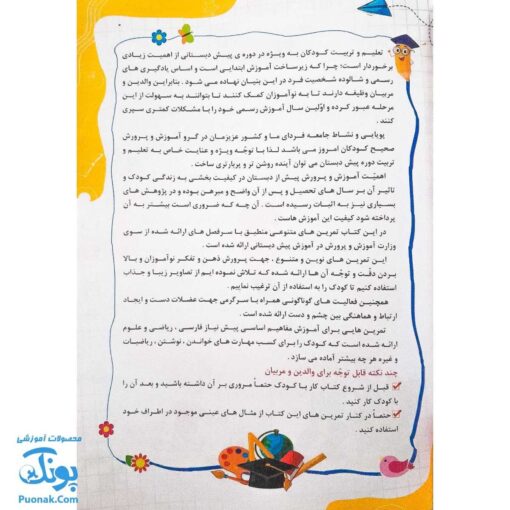 تعلیم و تربیت کودکان به ویژه در دوره ی پیش دبستانی از اهمیت زیادی
برخوردار است؛ چرا که زیرساخت آموزش ابتدایی است و اساس یادگیری های
رسمی و شالوده شخصیت فرد در این بنیان نهاده می شود . بنابراین والدین و
مربیان وظیفه دارند تا به نوآموزان کمک کنند تا بتوانند به سهولت از این
مرحله عبور کرده و اوّلین سال آموزش رسمی خود را با مشکلات کمتری سپری
کنند .
پویایی و نشاط جامعه فردای ما و کشور عزیزمان در گرو آموزش و پرورش
صحیح کودکان امروز می باشد لذا با توجّه ویژه و عنایت خاص به تعلیم و
تربیت دوره پیش دبستان می توان آینده روشن تر و پربارتری ساخت .
اهمیّت آموزش و پرورش پیش از دبستان در کیفیت بخشی به زندگی کودک و
تاثیر آن بر سال های تحصیل و پس از آن واضح و مبرهن بوده و در پژوهش های
بسیاری نیز به اثبات رسیده است . آن چه که ضروری است بیشتر به آن
پرداخته شود کیفیت این آموزش هاست .
در این کتاب تمرین های متنوعی منطبق با سرفصل های ارائه شده از سوی
وزارت آموزش و پرورش در آموزش پیش دبستانی ارائه شده است .
این تمرین های نوین و متنوع ، جهت پرورش ذهن و تفکر نوآموزان و بالا
بردن دقّت و توجّه آن ها ارائه شده که تلاش نموده ایم از تصاویر زیبا و جذاب
استفاده کنیم تا کودک را به استفاده از آن ترغیب نماییم .
همچنین فعالیت های گوناگونی همراه با سرگرمی جهت عضلات دست و ایجاد
ارتباط و هماهنگی بین چشم و دست ارائه شده است .
تمرین هایی برای آموزش مفاهیم اساسی پیش نیاز فارسی ، ریاضی و علوم
ارائه شده است که کودک را برای کسب مهارت های خواندن ، نوشتن ، ریاضیات
و غیره هر چه بیشتر آماده می سازد .
چند نکته قابل توجّه برای والدین و مربیان
قبل از شروع کتاب کار با کودک حتماً مروری بر آن داشته باشید و بعد آن را
با کودک کار کنید .
حتماً در کنار تمرین های این کتاب از مثال های عینی موجود در اطراف خود
استفاده کنید .
محصولات آموزشی
پونک
Puonak.Com